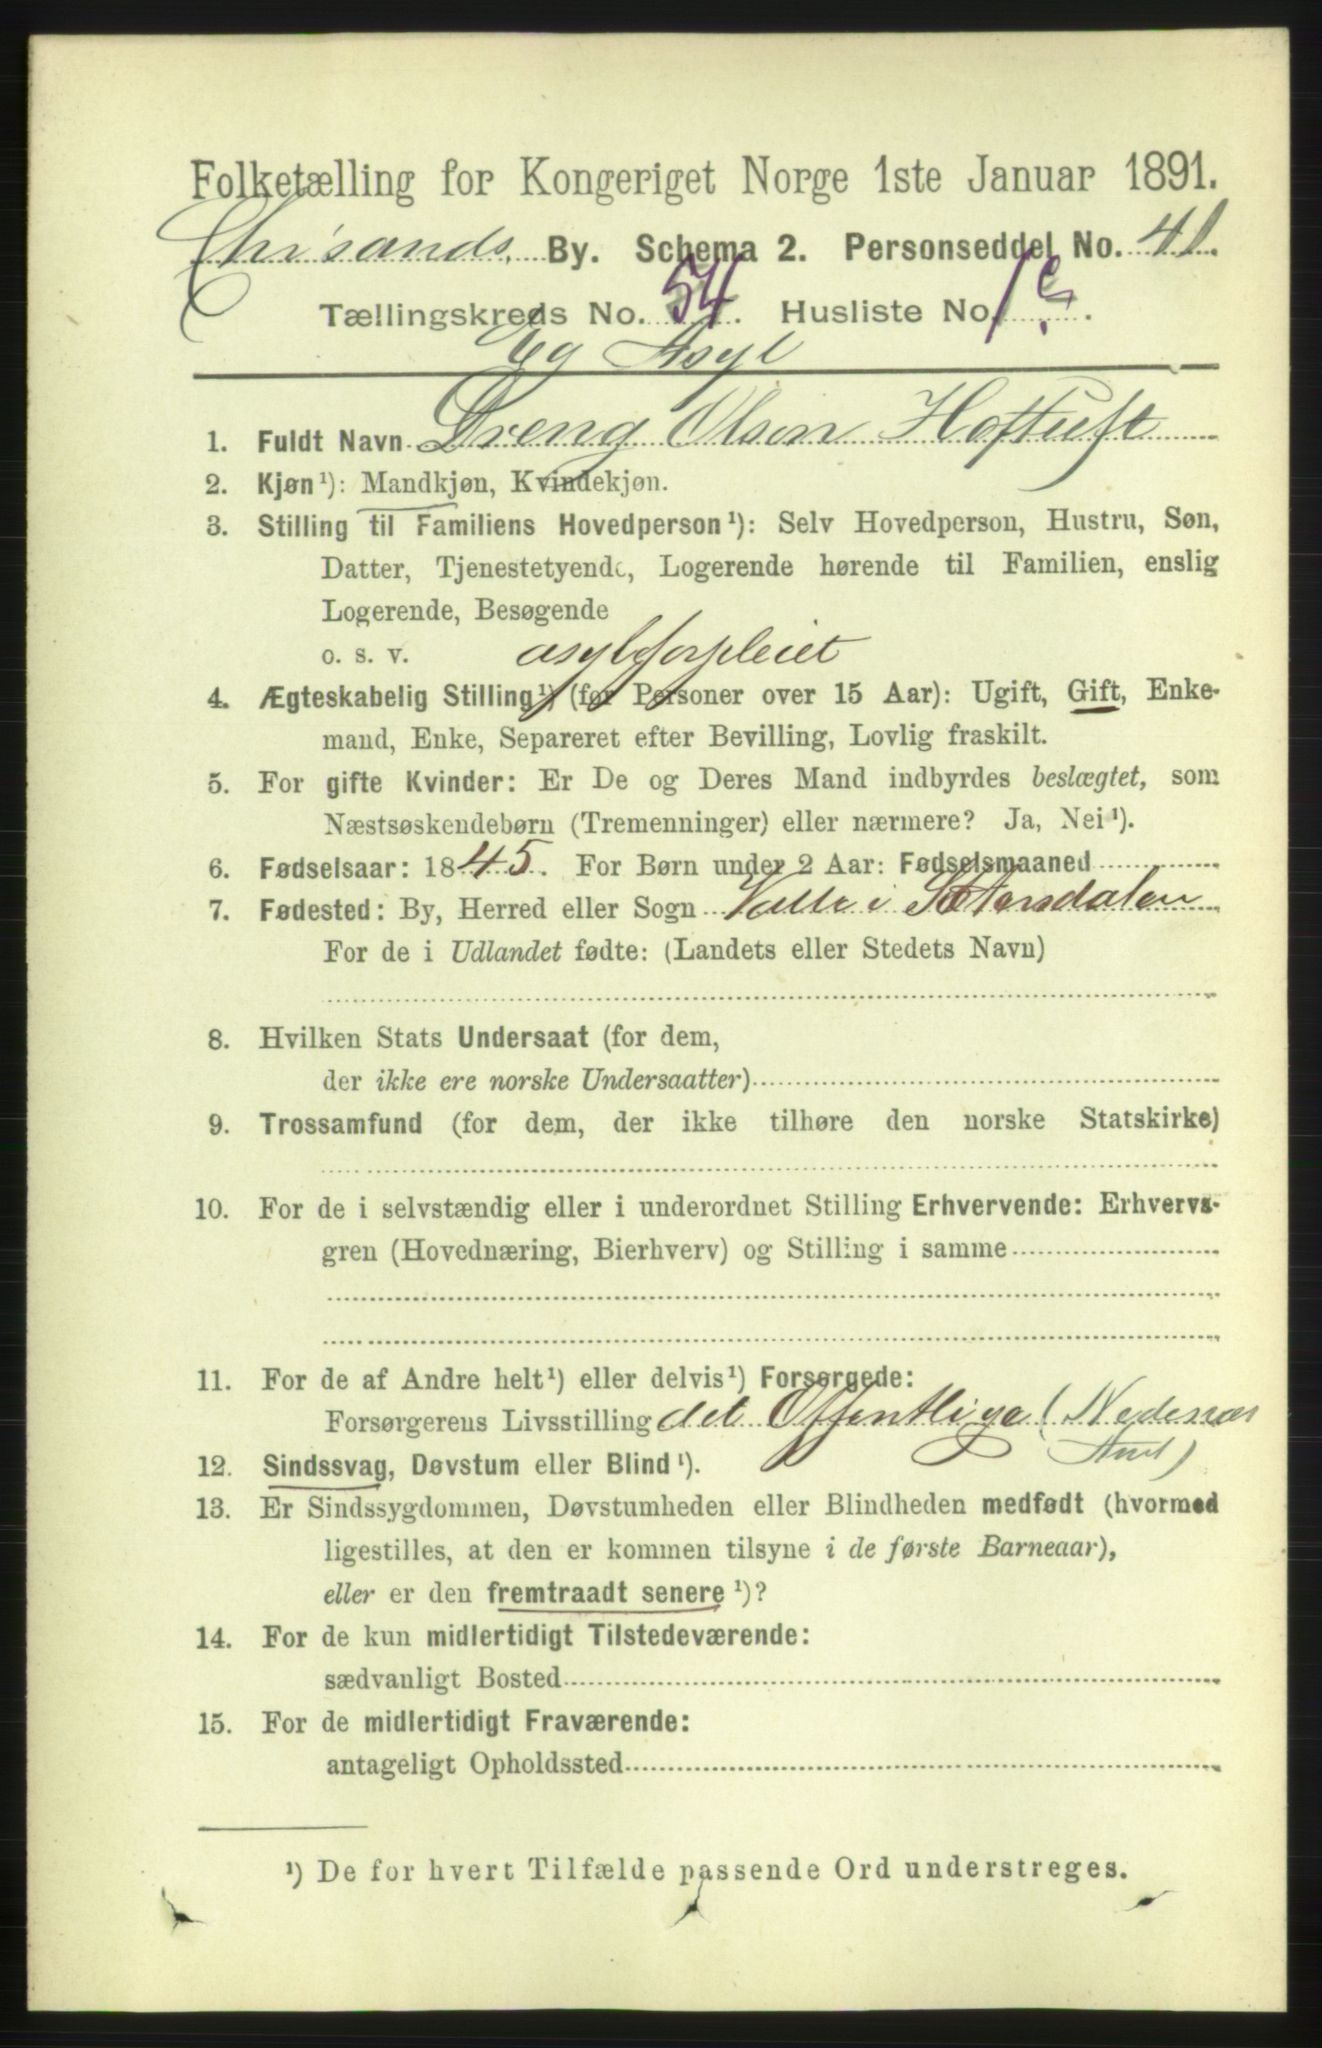 Folketælling for Kongeriget Norge 1ste Januar 1891.
Chr'sands By. Schema 2. Personseddel No. 41.
Tællingskreds No. 54. Husliste No. 1 c.
Eg Asyl
1. Fuldt Navn Dreng Olsen Hoftuft
2. Kjøn¹): Mandkjøn, Kvindekjøn.
3. Stilling til Familiens Hovedperson¹): Selv Hovedperson, Hustru, Søn,
Datter, Tjenestetyende, Logerende hørende til Familien, enslig
Logerende, Besøgende
o. s. v. asylforpleiet
4. Ægteskabelig Stilling¹) (før Personer over 15 Aar): Ugift, Gift, Enke-
mand, Enke, Separeret efter Bevilling, Lovlig fraskilt.
5. For gifte Kvinder: Er De og Deres Mand indbyrdes beslægtet, som
Næstsøskendebørn (Tremenninger) eller nærmere? Ja, Nei¹).
6. Fødselsaar: 1845. For Børn under 2 Aar: Fødselsmaaned
7. Fødested: By, Herred eller Sogn Valle i Sætersdalen
For de i Udlandet fødte: (Landets eller Stedets Navn)
8. Hvilken Stats Undersaat (for dem,
der ikke ere norske Undersaatter)
9. Trossamfund (for dem, der ikke tilhøre den norske Statskirke)
10. For de i selvstændig eller i underordnet Stilling Erhvervende: Erhvervs-
gren (Hovednæring, Bierhverv) og Stilling i samme
11. For de af Andre helt¹) eller delvis¹) Forsørgede:
Forsørgerens Livsstilling det Offentlige (Nedenæs
Amt)
12. Sindssvag, Døvstum eller Blind¹).
13. Er Sindssygdommen, Døvstumheden eller Blindheden medfødt (hvormed
ligestilles, at den er kommen tilsyne i de første Barneaar),
eller er den fremtraadt senere¹)?
14. For de kun midlertidigt Tilstedeværende:
sædvanligt Bosted
15. For de midlertidigt Fraværende:
antageligt Opholdssted
¹) De for hvert Tilfælde passende Ord understreges.